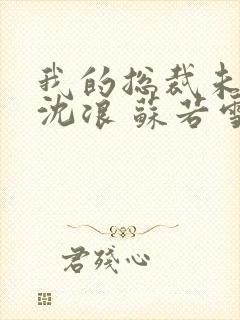 我的总裁未
沈浪 苏若雪
君残心